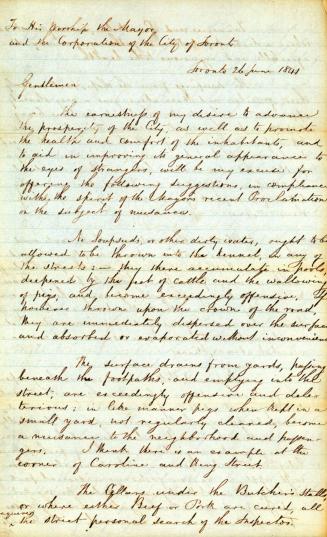 To His Worship the Mayor
and the Corporation of the City of Toronto
Toronto 26 June 1841
Gentlemen
The earnestness of my desire to advance
the prosperity of the City, as well as to promote
the health and comfort of the inhabitants, and
to aid in improving its general appearance to
the eyes of strangers, will be my excuse for
offering the following suggestions, in compliance
with, the spirit of the Mayors recent Proclamation
on the subject of nuisances.
No Soapsuds, or other dirty water, ought to be
allowed to be thrown into the kennel, in any of
the streets; – they there accumulate in pools,
deepened by the feet of cattle and the wallowing
of pigs, and become exceedingly offensive. If
however thrown upon the crown of the road,
they are immediately dispersed over the surface
and absorbed or evaporated without inconvenience
The surface drains from yards, passing
beneath the footpaths, and emptying into the
street, are exceedingly offensive and dele-
terious; in like manner pigs when kept in a
small yard, not regularly cleaned, become
a nuisance to the neighborhood and passen-
gers. I think there is an example at the
corner of Caroline and King Street
The Cellars under the Butcher's Stalls,
or where either Beef or Pork are cured, all
require
the strict personal search of the Inspector.